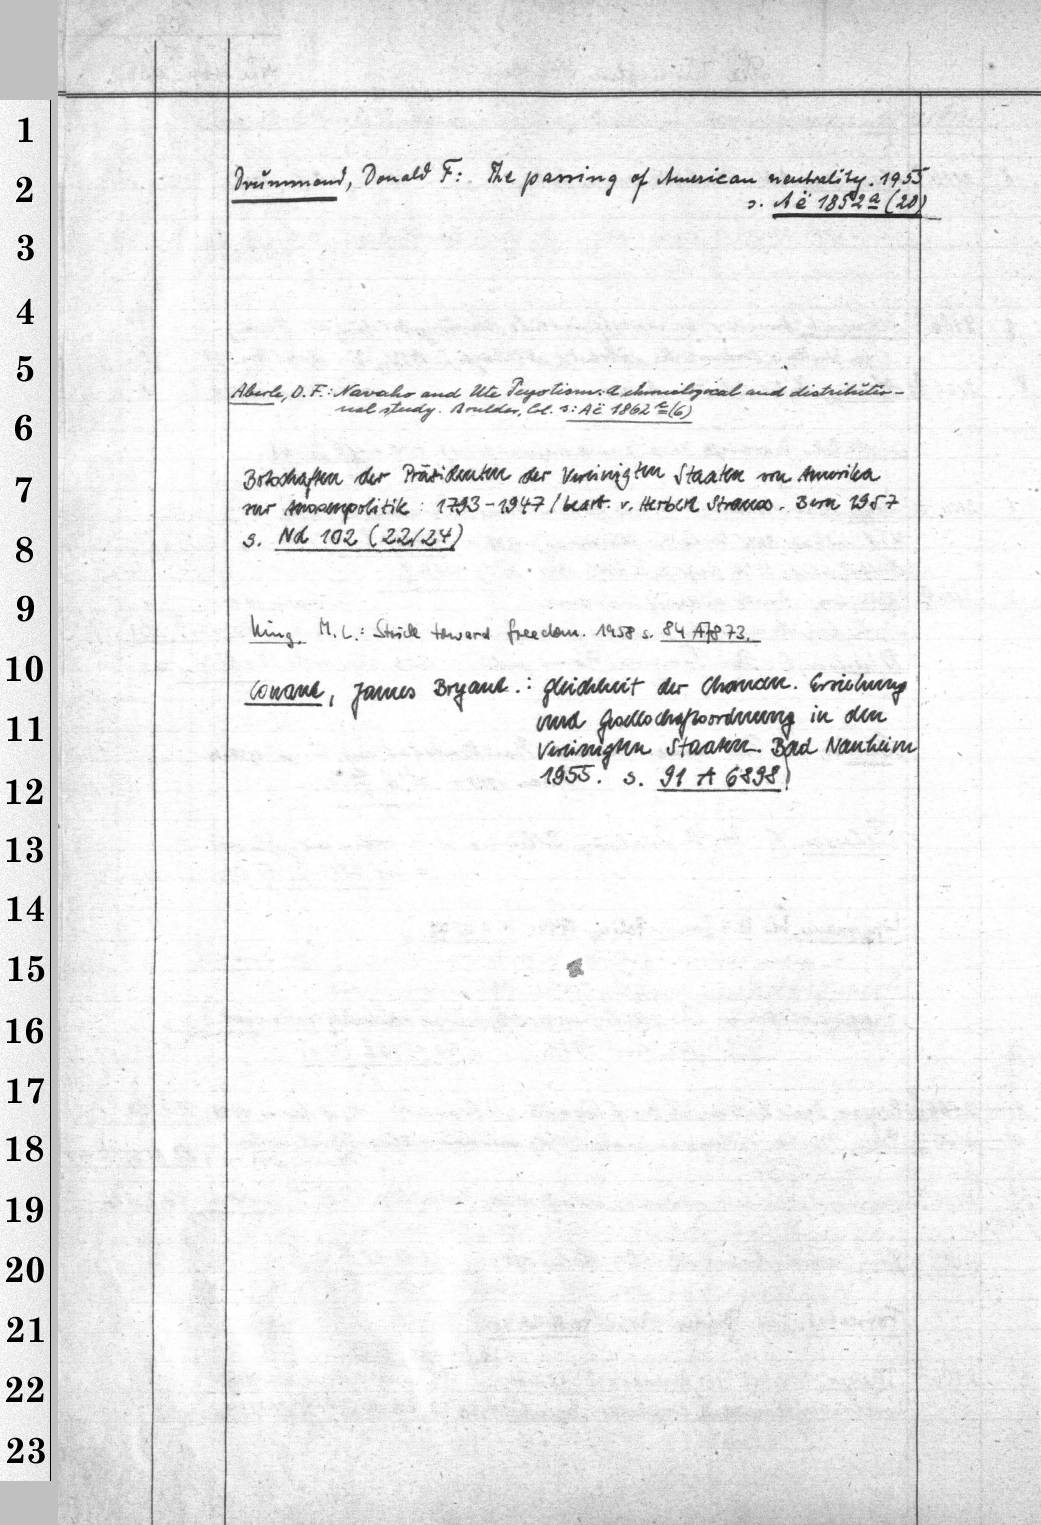 1
2
3
4
5
6
7
8
9
10
11
12
13
14
15
16
17
18
19
20
21
22
23
Drummond, Donald F.: The passing of American neutrality. 1955
s. Aë 1852a (20)
Aberle, D. F.: Navaho and Ute Peyotism: A chronological and distributio-
nal study. Boulder, Col. s: Aë 1862 c (6)
Botschaften der Präsidenten der Vereinigten Staaten von Amerika
zur Aussenpolitik: 1793-1947 / bearb. v. Herbert Strauss. Bern 1957
s. Nd 102 (22/24)
King, M. L.: Stride toward freedom. 1958 s. 84 A 7873.
Conant, James Bryant.: Gleichheit der Chancen. Erziehung
und Gesellschaftsordnung in den
Vereinigten Staaten. Bad Nauheim
1955. s. 91 A 6898